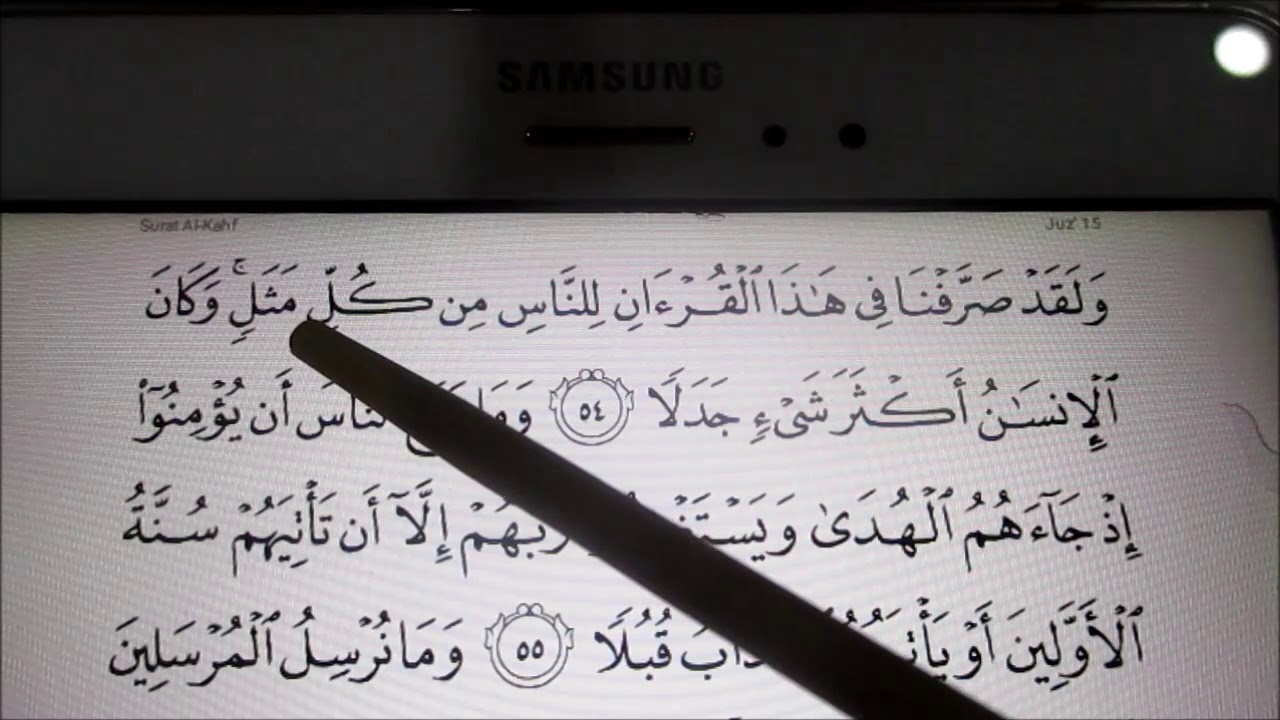 SAMSUNG
Surat Al-Kahf
Juz' 15
وَلَقَدْ صَرَّفْنَا فِي هَـٰذَا ٱلْقُرْءَانِ لِلنَّاسِ مِن كُلِّ مَثَلٍۢ ۚ وَكَانَ
ٱلْإِنسَـٰنُ أَكْثَرَ شَىْءٍۢ جَدَلًۭا ٥٤ أَن يُؤْمِنُوٓا۟
إِذْ جَآءَهُمُ ٱلْهُدَىٰ إِلَّآ أَن تَأْتِيَهُمْ سُنَّةُ
ٱلْأَوَّلِينَ أَوْ قُبُلًۭا ٥٥ وَمَا نُرْسِلُ ٱلْمُرْسَلِينَ